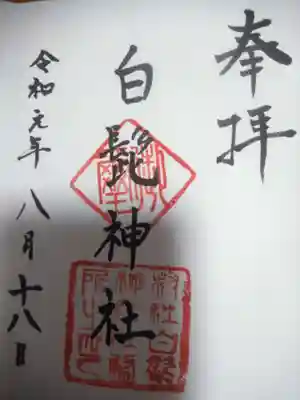 奉拝
白髭神社
令和元年八月十八日